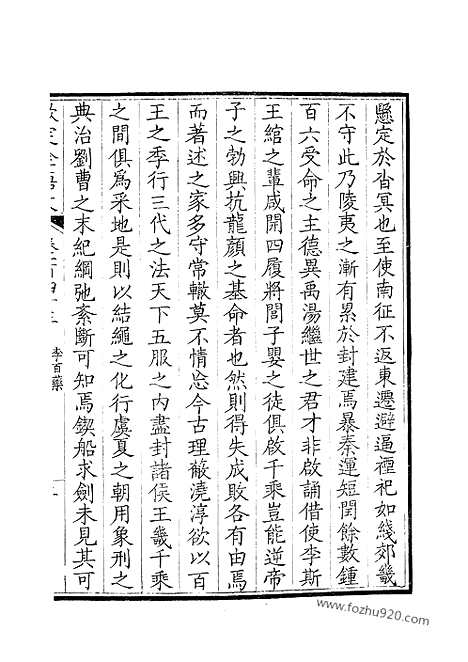 懸定於沓冥也至使南征不返東遷避逼禋祀如綫郊畿
不守此乃陵夷之漸有累於封建焉暴秦運短閏餘數鍾
百六受命之主德異禹湯繼世之君才非啟誦借使李斯
王綰之輩咸開四履將閭子嬰之徒俱啟千乘豈能逆帝
子之勃興抗龍顏之基命者也然則得失成敗各有由焉
而著述之家多守常轍莫不情忘今古理蔽澆淳欲以百
王之季行三代之法天下五服之內盡封諸侯王畿千乘
之間俱爲采地是則以結繩之化行虞夏之朝用象刑之
典治劉曹之末紀綱弛紊斷可知焉鍥船求劍未見其可
李百藥
www.fozhu920.com